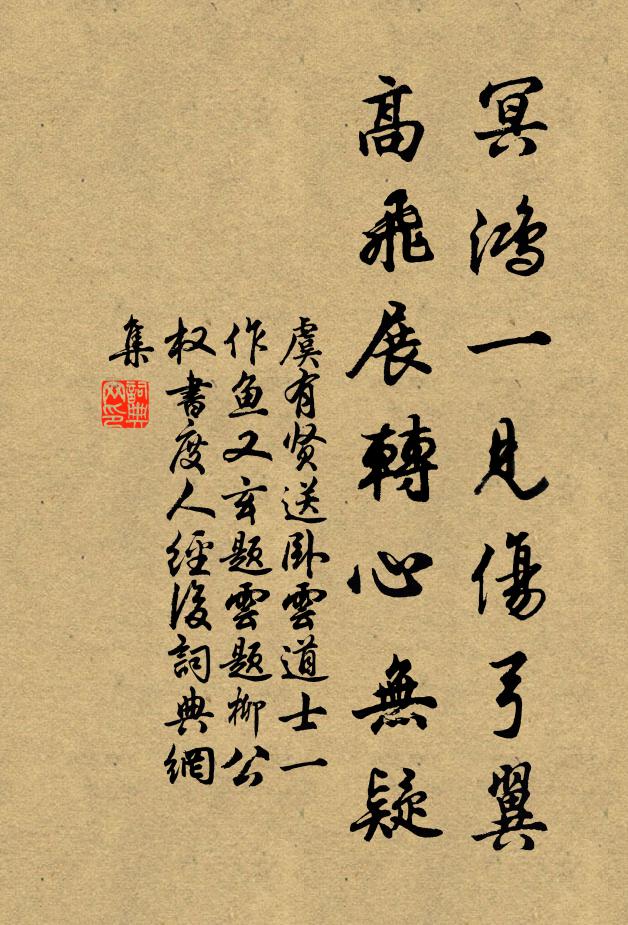 冥鴻一見傷弓翼
高飛展轉心無疑
虞有贤送卧雲道士一
作鱼又玄題雲題柳公
权書度人經後詞典網
集
詞典
网印